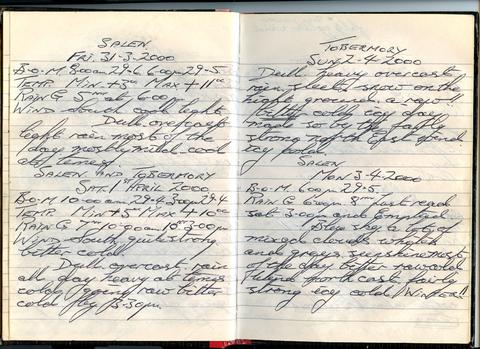 SALEN
FRI. 31-3-2000
B.O.M. 8.00am 29.6 6.00pm 29.5
TEMP. MIN +3 MAX +11
RAIN G 5 at 6.00
WIND South light
Dull overcast
light rain most of the
day mostly mild cool
at times.
SALEN AND TOBERMORY
SAT. 1st APRIL 2000
B.O.M. 10.00am 29.4 3.00pm 29.4
TEMP. MIN +5 MAX +10
RAIN G 7 10.00am 3.00pm
WIND South quite strong
bitter cold.
Dull overcast rain
all day heavy at times
cold raw bitter
cold 3.30pm.
TOBERMORY
SUN 2-4-2000
Dull heavy overcast
rain sleet snow on the
high ground a raw!!
bitter cold icy day
made so by the fairly
strong North East wind
icy cold
SALEN
MON 3-4-2000
B.O.M. 6.00pm 29.5
RAIN G 6.00pm 8mm last read
sat 3.00pm and emptied
Blue sky a lot of
mixed clouds white
and greys sunshine most
of the day bitter raw cold
Wind North East fairly
strong icy cold WINTER!!